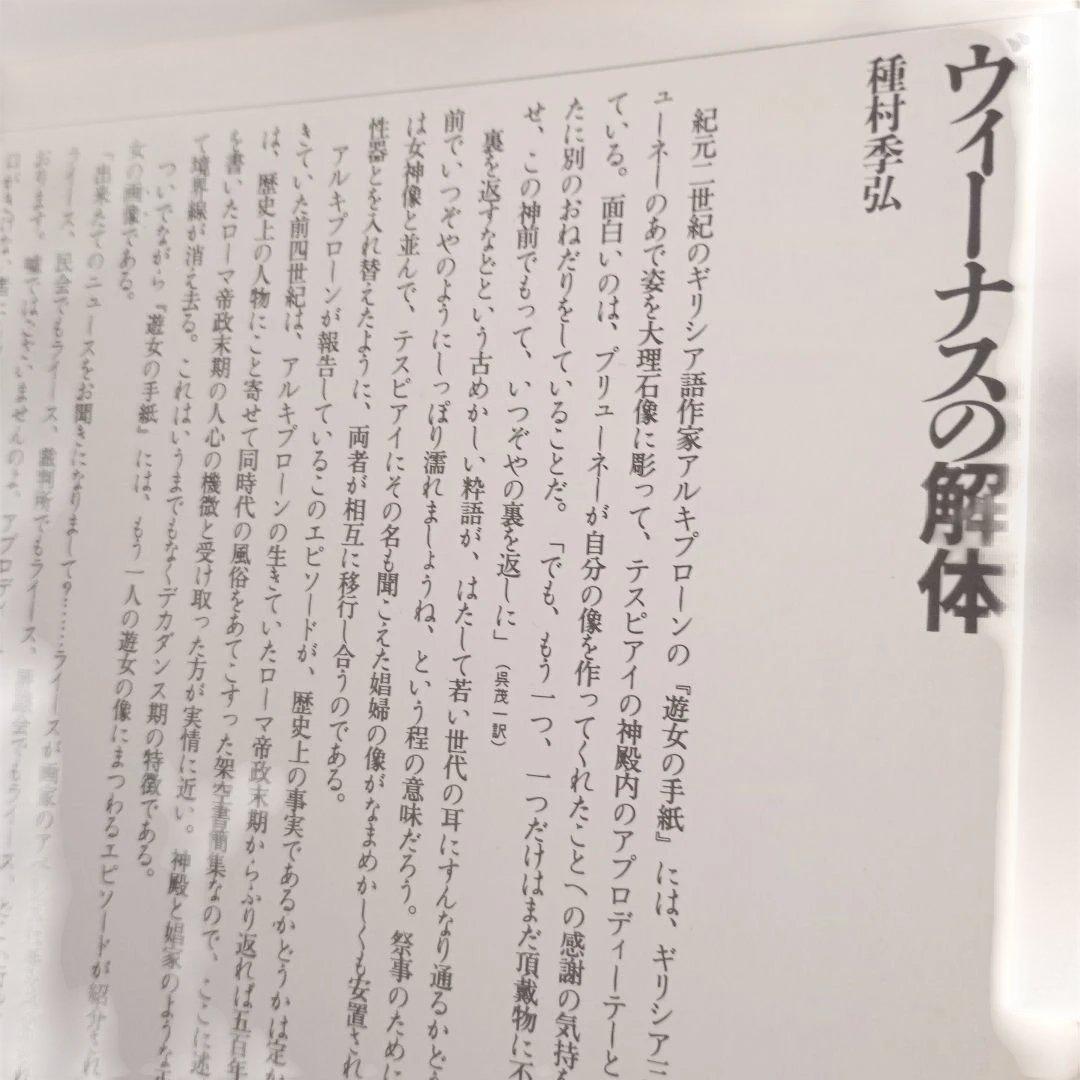 ヴィーナスの解体
種村季弘
紀元二世紀のギリシア語作家アルキプローンの『遊女の手紙』には、ギリシア
ューネーのあで姿を大理石像に彫って、テスピアイの神殿内のアプロディーテーと
ている。面白いのは、プリューネーが自分の像を作ってくれたことへの感謝の気持
たに別のおねだりをしていることだ。「でも、もう一つ、一つだけはまだ頂戴物に不
せ、この神前でもって、いつぞやの裏を返しに」(呉茂一訳)
裏を返すなどという古めかしい粋語が、はたして若い世代の耳にすんなり通るかど
前で、いつぞやのようにしっぽり濡れましょうね、という程の意味だろう。祭事のために
は女神像と並んで、テスピアイにその名も聞こえた娼婦の像がなまめかしくも安置され
性器とを入れ替えたように、両者が相互に移行し合うのである。
アルキプローンが報告しているこのエピソードが、歴史上の事実であるかどうかは定か
きていた前四世紀は、アルキプローンの生きていたローマ帝政末期からふり返れば五百年
は、歴史上の人物にこと寄せて同時代の風俗をあてこすった架空書簡集なので、ここに述
を書いたローマ帝政末期の人心の機微と受け取った方が実情に近い。神殿と娼家のような正
て境界線が消え去る。これはいうまでもなくデカダンス期の特徴である。
ついでながら『遊女の手紙』には、もう一人の遊女の像にまつわるエピソードが紹介され
女の画像である。
「出来たてのニュースをお聞きになりまして?……ライースが画家のアペ
ライース、民会でもライース、裁判所でもライース、
おります。嘘ではございませんのよ、アプロディ